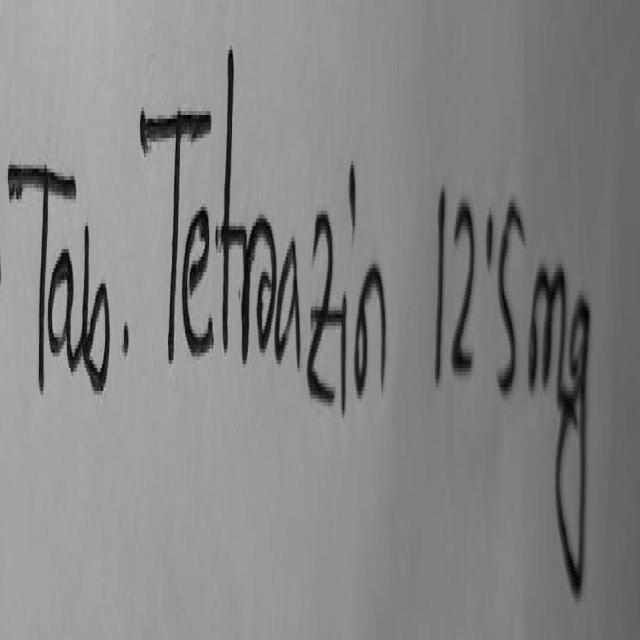 Tab. Tetrazin 12.5mg